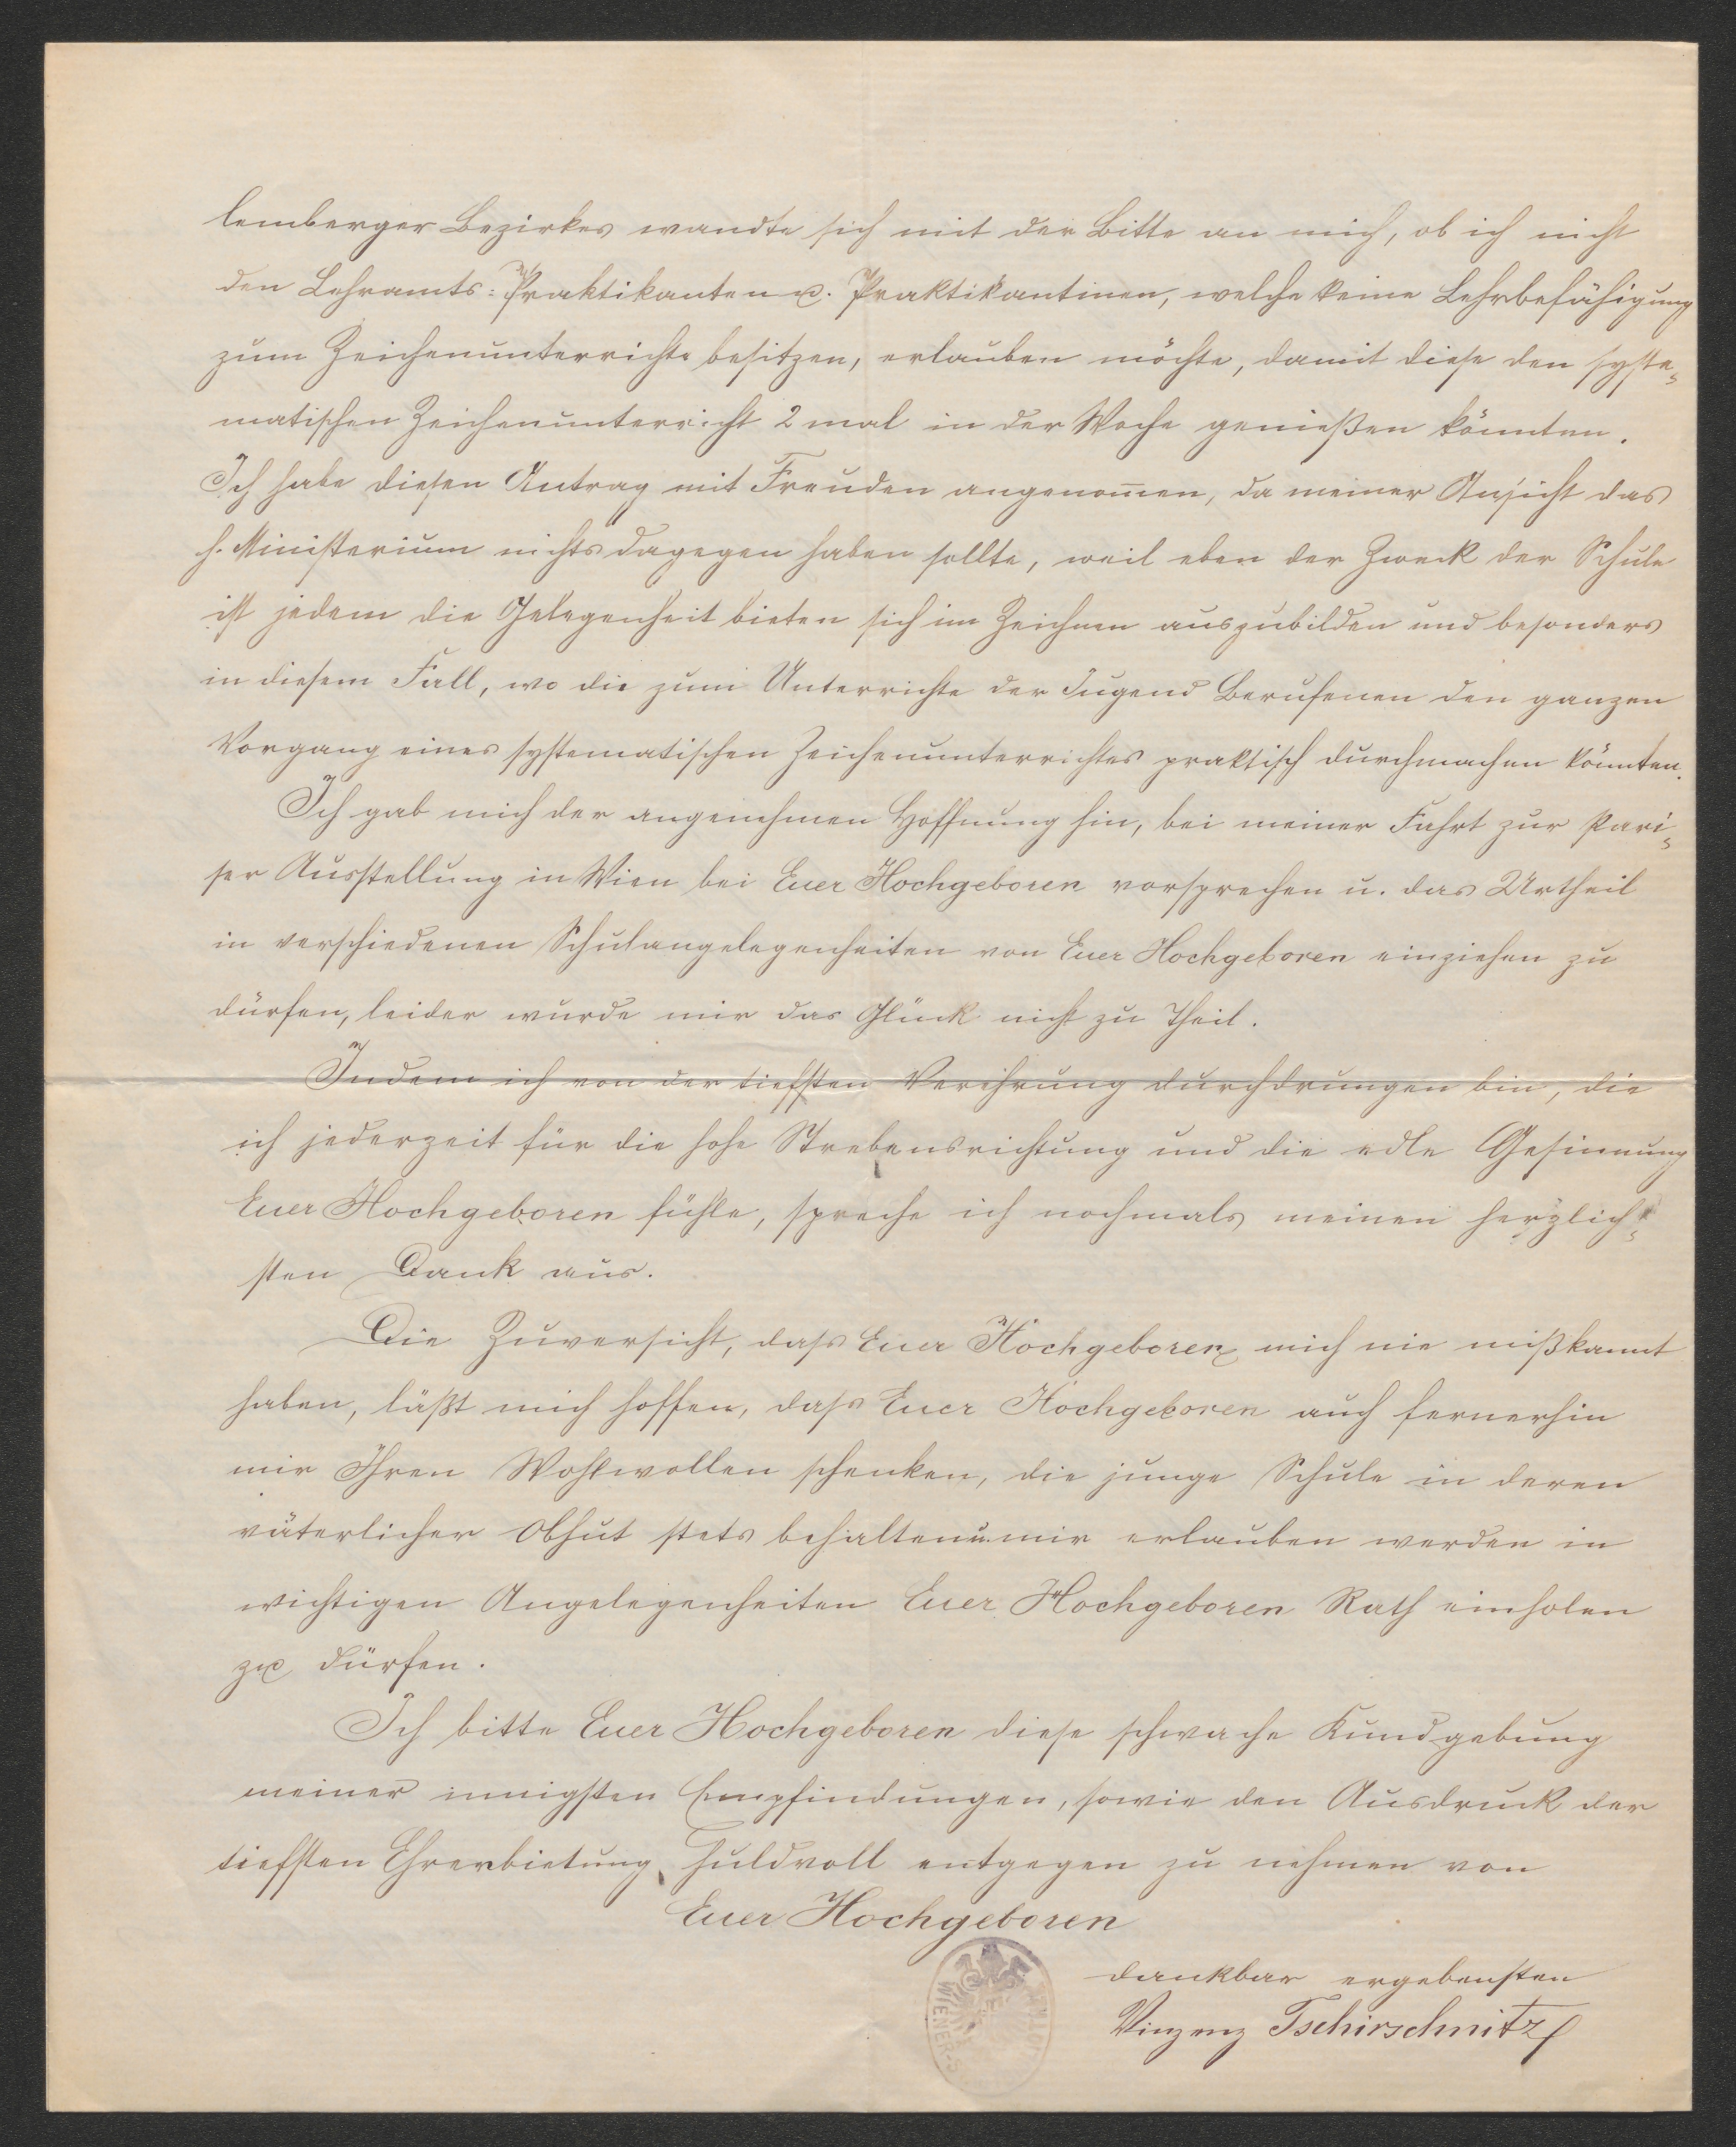 lemberger Bezirkes wandte sich mit der Bitte an mich, ob ich nicht
den Lehramts: Praktikanten u. Praktikantinen, welche keine Lehrbefähigung
zum Zeichenunterrichte besitzen, erlauben möchte, damit diese den syste-
matischen Zeichenunterricht 2 mal in der Woche genießen könnten.
Ich habe diesen Antrag mit Freuden angenom̅en, da meiner Ansicht das
h. Ministerium nichts dagegen haben sollte, weil eben der Zweck der Schule
ist jedem die Gelegenheit bieten sich im Zeichnen auszubilden und besonders
in diesem Fall, wo die zum Unterrichte der Jugend Berufenen den ganzen
Vorgang eines systematischen Zeichenunterrichtes praktisch durchmachen könnten.
Ich gab mich der angenehmen Hoffnung hin, bei meiner Fahrt zur Pari-
ser Ausstellung in Wien bei Euer Hochgeboren vorsprechen u. das Urtheil
in verschiedenen Schulangelegenheiten von Euer Hochgeboren einziehen zu
dürfen, leider wurde mir das Glück nicht zu Theil.
Indem ich von der tiefsten Verehrung durchdrungen bin, die
ich jederzeit für die hohe Strebensrichtung und die edle Gesinnung
Euer Hochgeboren fühle, spreche ich nochmals meinen herzlich-
sten Dank aus.
Die Zuversicht, dass Euer Hochgeboren mich nie mißkannt
haben, läßt mich hoffen, dass Euer Hochgeboren auch fernerhin
mir Ihren Wohlwollen schenken, die junge Schule in deren
väterlicher Obhut stets behalten u. mir erlauben werden in
wichtigen Angelegenheiten Euer Hochgeboren Rath einholen
zu dürfen.
Ich bitte Euer Hochgeboren diese schwache Kundgebung
meiner innigsten Empfindungen, sowie den Ausdruck der
tiefsten Ehrerbietung huldvoll entgegen zu nehmen von
Euer Hochgeboren
dankbar ergebensten
Vinzenz Tschirschnitz
WIENER-S